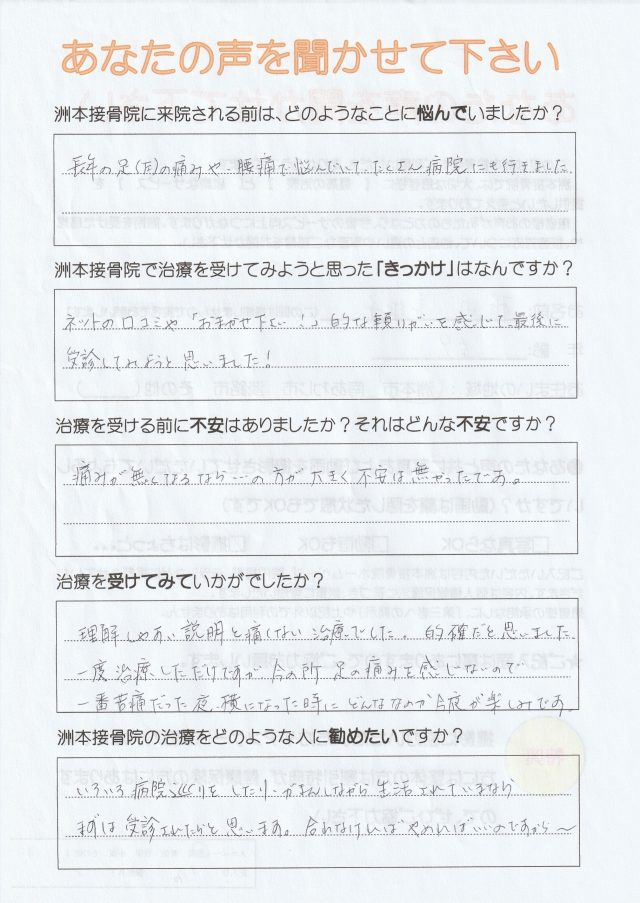 あなたの声を聞かせて下さい
洲本接骨院に来院される前は、どのようなことに悩んでいましたか？
長年の足(左)の痛みや 腰痛で悩んでいて、たくさん病院にも行きました。
洲本接骨院で治療を受けてみようと思った「きっかけ」はなんですか？
ネットの口コミや「おまかせ下さい！」的な頼りがいを感じて、最後に
受診してみようと思いました！
治療を受ける前に不安はありましたか？それはどんな不安ですか？
痛みが無くなるなら…の方が大きく不安は無かったです。
治療を受けてみていかがでしたか？
理解しやすい説明と痛くない治療でした。的確だと思いました
一度治療しただけですが今の所 足の痛みを感じないので
一番苦痛だった夜、横になった時にどんななのか今夜が楽しみです。
洲本接骨院の治療をどのような人に勧めたいですか？
いろいろ病院巡りをしたり、がまんしながら生活されているなら
まずは受診されたらと思います。合わなければやめればいいのですから〜